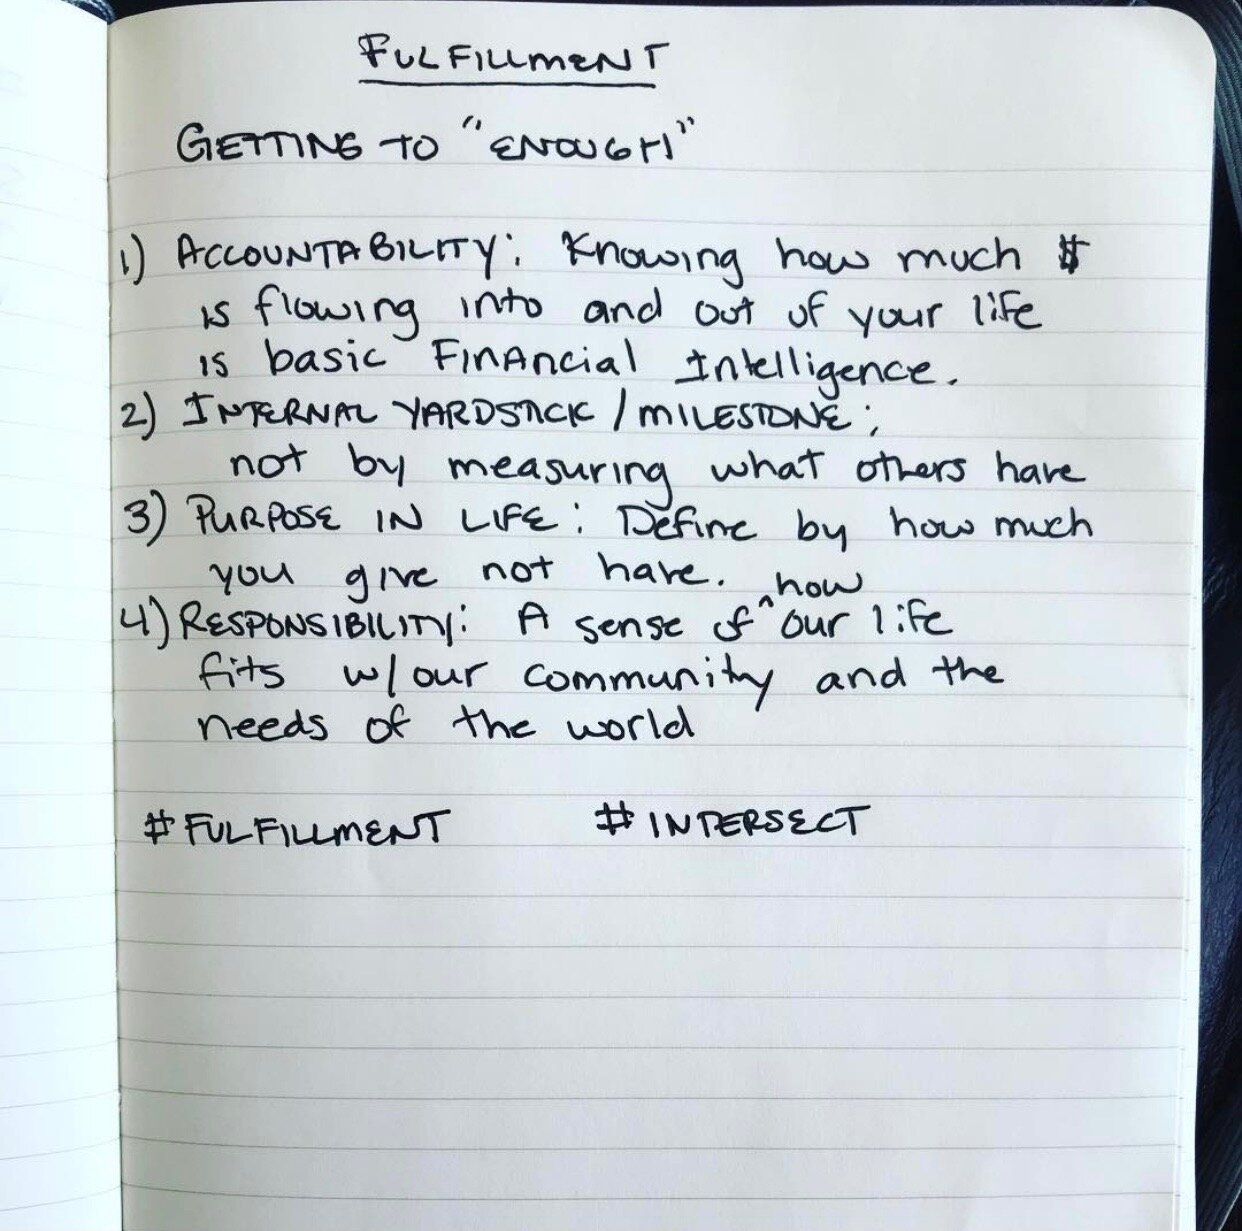 FULFILLMENT
GETTING TO "ENOUGH"
1) ACCOUNTABILITY: Knowing how much $
is flowing into and out of your life
is basic Financial Intelligence.
2) INTERNAL YARDSTICK / MILESTONE;
not by measuring what others have
3) PURPOSE IN LIFE: Define by how much
you give not have.
4) RESPONSIBILITY: A sense of ^how our life
fits w/ our community and the
needs of the world
#FULFILLMENT #INTERSECT